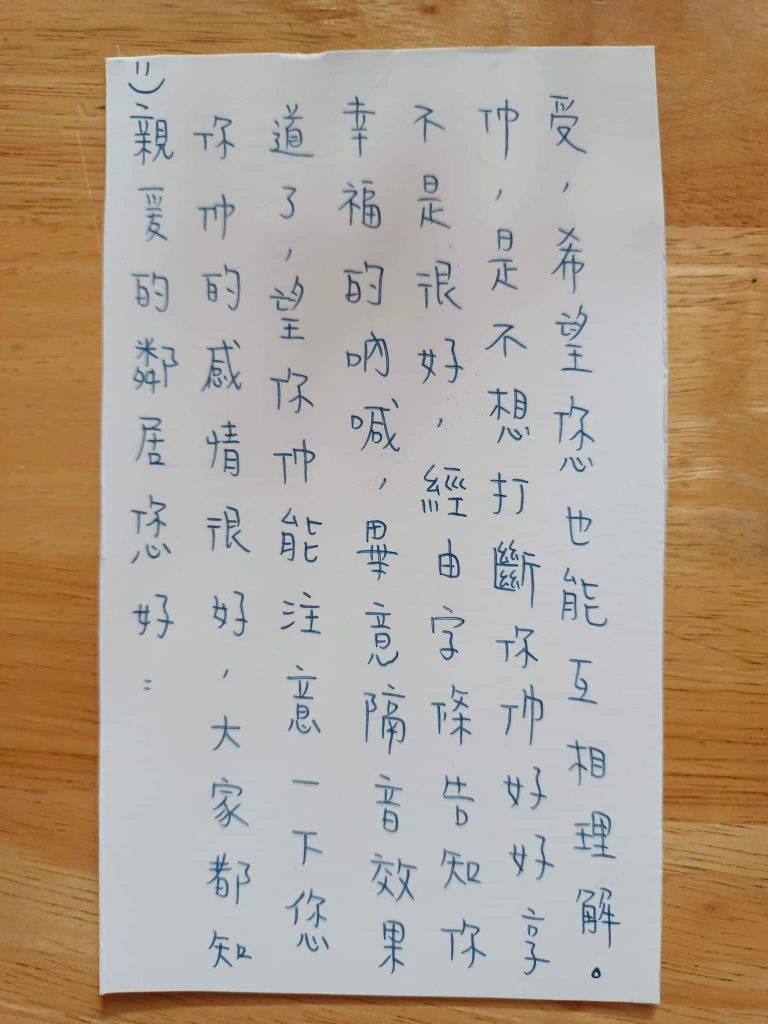 :)
親爱的鄰居您好：
你们的感情很好，大家都知
道了，望你们能注意一下您
幸福的吶喊，畢意隔音效果
不是很好，經由字條告知你
们，是不想打斷你们好好享
受，希望您也能互相理解。